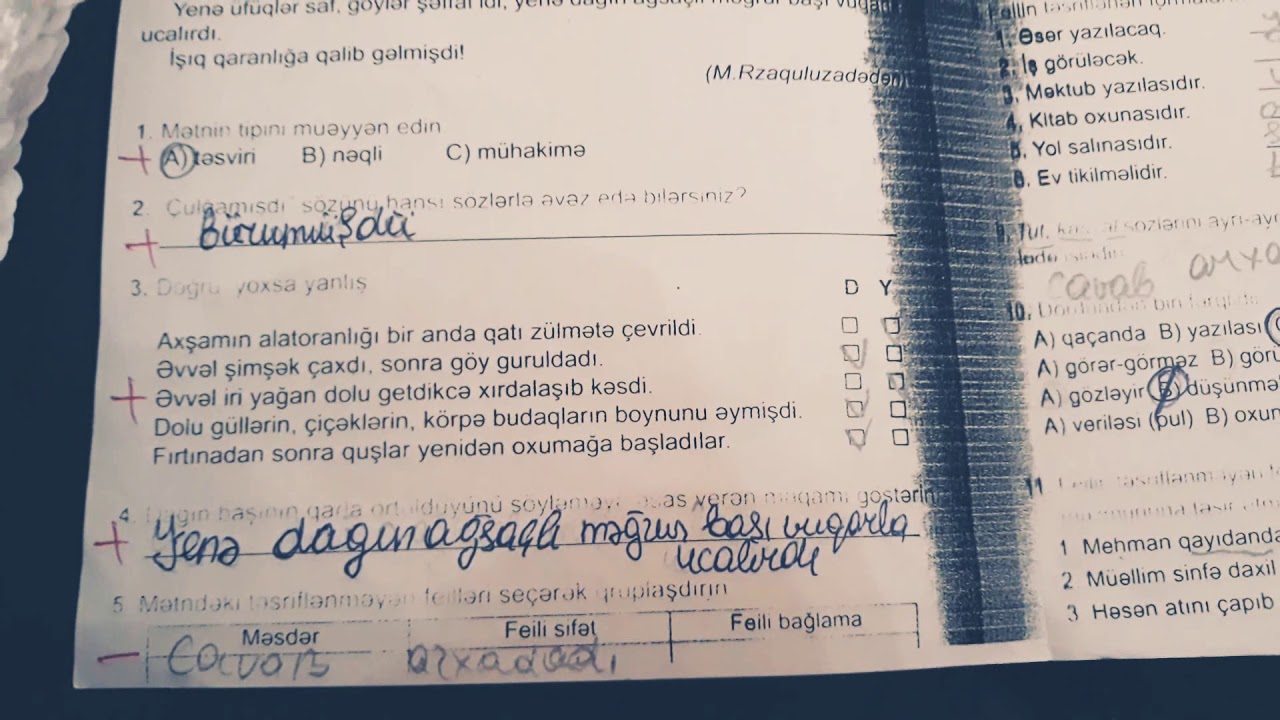 Yenə üfüqlər saf, göylər şəffaf idi, yenə dağın ağsaçlı məğrur başı vüqarla
ucalırdı.
İşıq qaranlığa qalib gəlmişdi!
(M.Rzaquluzadədən)
1. Mətnin tipini muəyyən edin
+ A) təsviri B) nəqli C) mühakimə
2. Çulğamışdı sözünü hansı sözlərlə əvəz edə bilərsiniz?
+ Bürümüşdü
3. Doğru yoxsa yanlış
D Y
Axşamın alatoranlığı bir anda qatı zülmətə çevrildi.
Əvvəl şimşək çaxdı, sonra göy guruldadı.
+ Əvvəl iri yağan dolu getdikcə xırdalaşıb kəsdi.
Dolu güllərin, çiçəklərin, körpə budaqların boynunu əymişdi.
Fırtınadan sonra quşlar yenidən oxumağa başladılar.
4. Dağın başının qarla örtülduyünü söyləməyə əsas verən məqamı göstərin
+ Yenə dağın ağsaçlı məğrur başı vuqarla
ucalırdı
5 Mətndəki təsriflənməyən feilləri seçərək qruplaşdırın
Məsdər Feili sifət Feili bağlama
– Cavab arxadadı
Feilin
1. Əsər yazılacaq.
2. İş görüləcək.
3. Məktub yazılasıdır.
4. Kitab oxunasıdır.
5. Yol salınasıdır.
6. Ev tikilməlidir.
9. Tut, kas, al sözlərini ayrı-ay
cavab arxa
10.
A) qaçanda B) yazılası
A) görər-görməz B) görü
A) gözləyir B) düşünmə
A) veriləsi (pul) B) oxun
11
1 Mehman qayıdanda
2 Müəllim sinfə daxil
3 Həsən atını çapıb